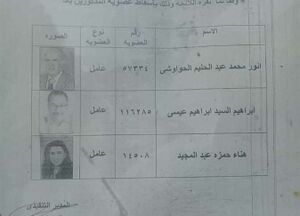 وذلك بإسقاط عضوية المذكورين بعد
الاسم
رقم العضوية
نوع العضوية
الصوره
انور محمد عبد الحليم الحواوشى
٥٧٣٣٤
عامل
ابراهيم السيد ابراهيم عيسى
١١٦٢٨٥
عامل
هناء حمزه عبد المجيد
١٤٥٠٨
عامل
المدير التنفيذى